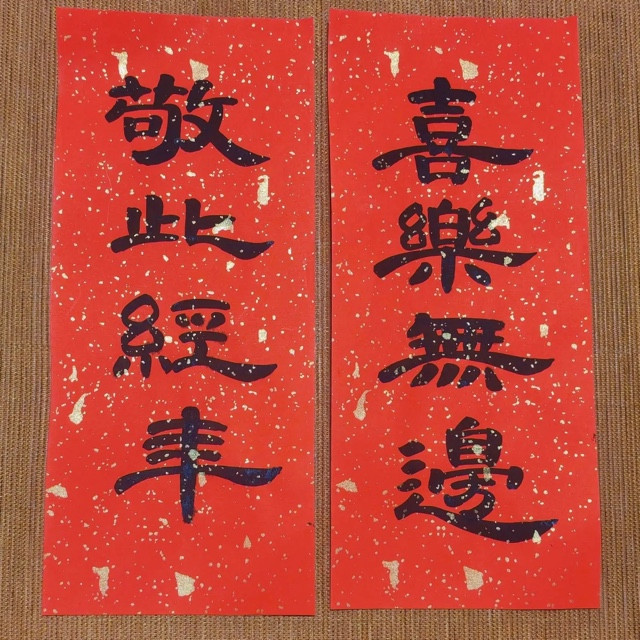 喜樂無邊
敬此經年